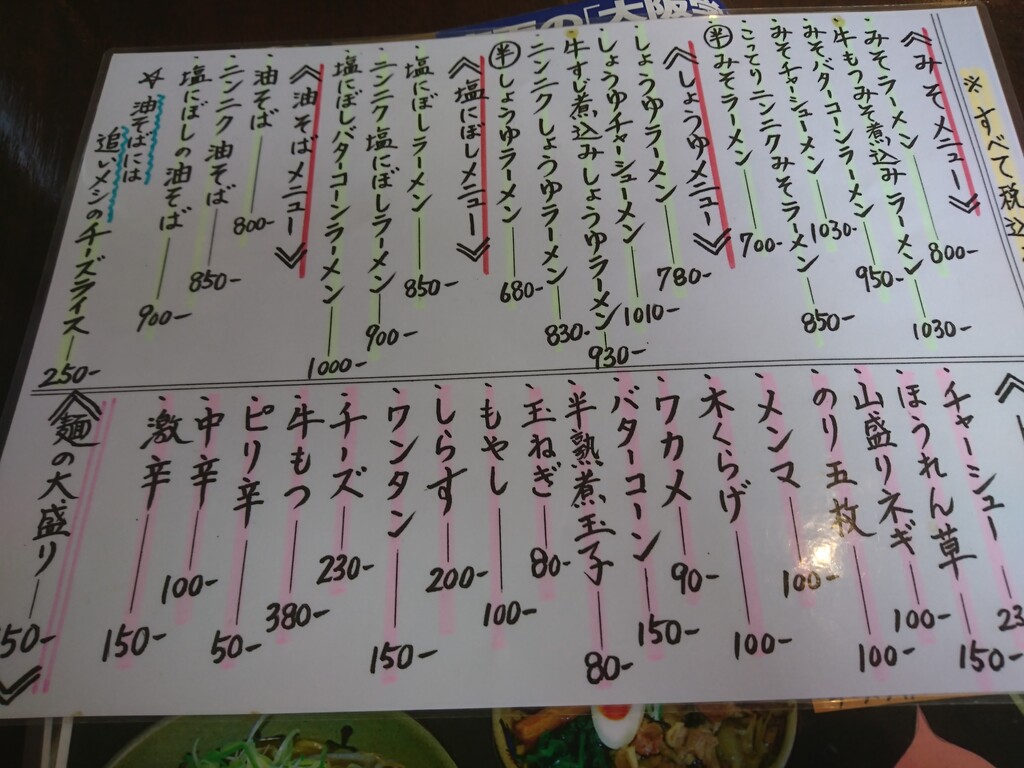 の「大阪
※すべて税込
《みそメニュー》
・みそラーメン―800-
・牛もつみそ煮込みラーメン―1030-
・みそバターコーンラーメン―950-
・みそチャーシューメン―1030-
・こってりニンニクみそラーメン―850-
半みそラーメン―700-
《しょうゆメニュー》
・しょうゆラーメン―780-
・しょうゆチャーシューメン―1010-
・牛すじ煮込みしょうゆラーメン―930-
・ニンニクしょうゆラーメン―830-
半しょうゆラーメン―680-
《塩にぼしメニュー》
・塩にぼしラーメン―850-
・ニンニク塩にぼしラーメン―900-
・塩にぼしバターコーンラーメン―1000-
《油そばメニュー》
・油そば―800-
・ニンニク油そば―850-
・塩にぼしの油そば―900-
☆油そばには
追いメシのチーズライス―250-
・チャーシュー―23
・ほうれん草―150-
・山盛りネギ―100-
・のり五枚―100-
・メンマ―100-
・木くらげ―100-
・ワカメ―90-
・バターコーン―150-
・半熟煮玉子―80-
・玉ねぎ―80-
・もやし―100-
・しらす―200-
・ワンタン―150-
・チーズ―230-
・牛もつ―380-
・ピリ辛―50-
・中辛―100-
・激辛―150-
《麺の大盛り―50-》